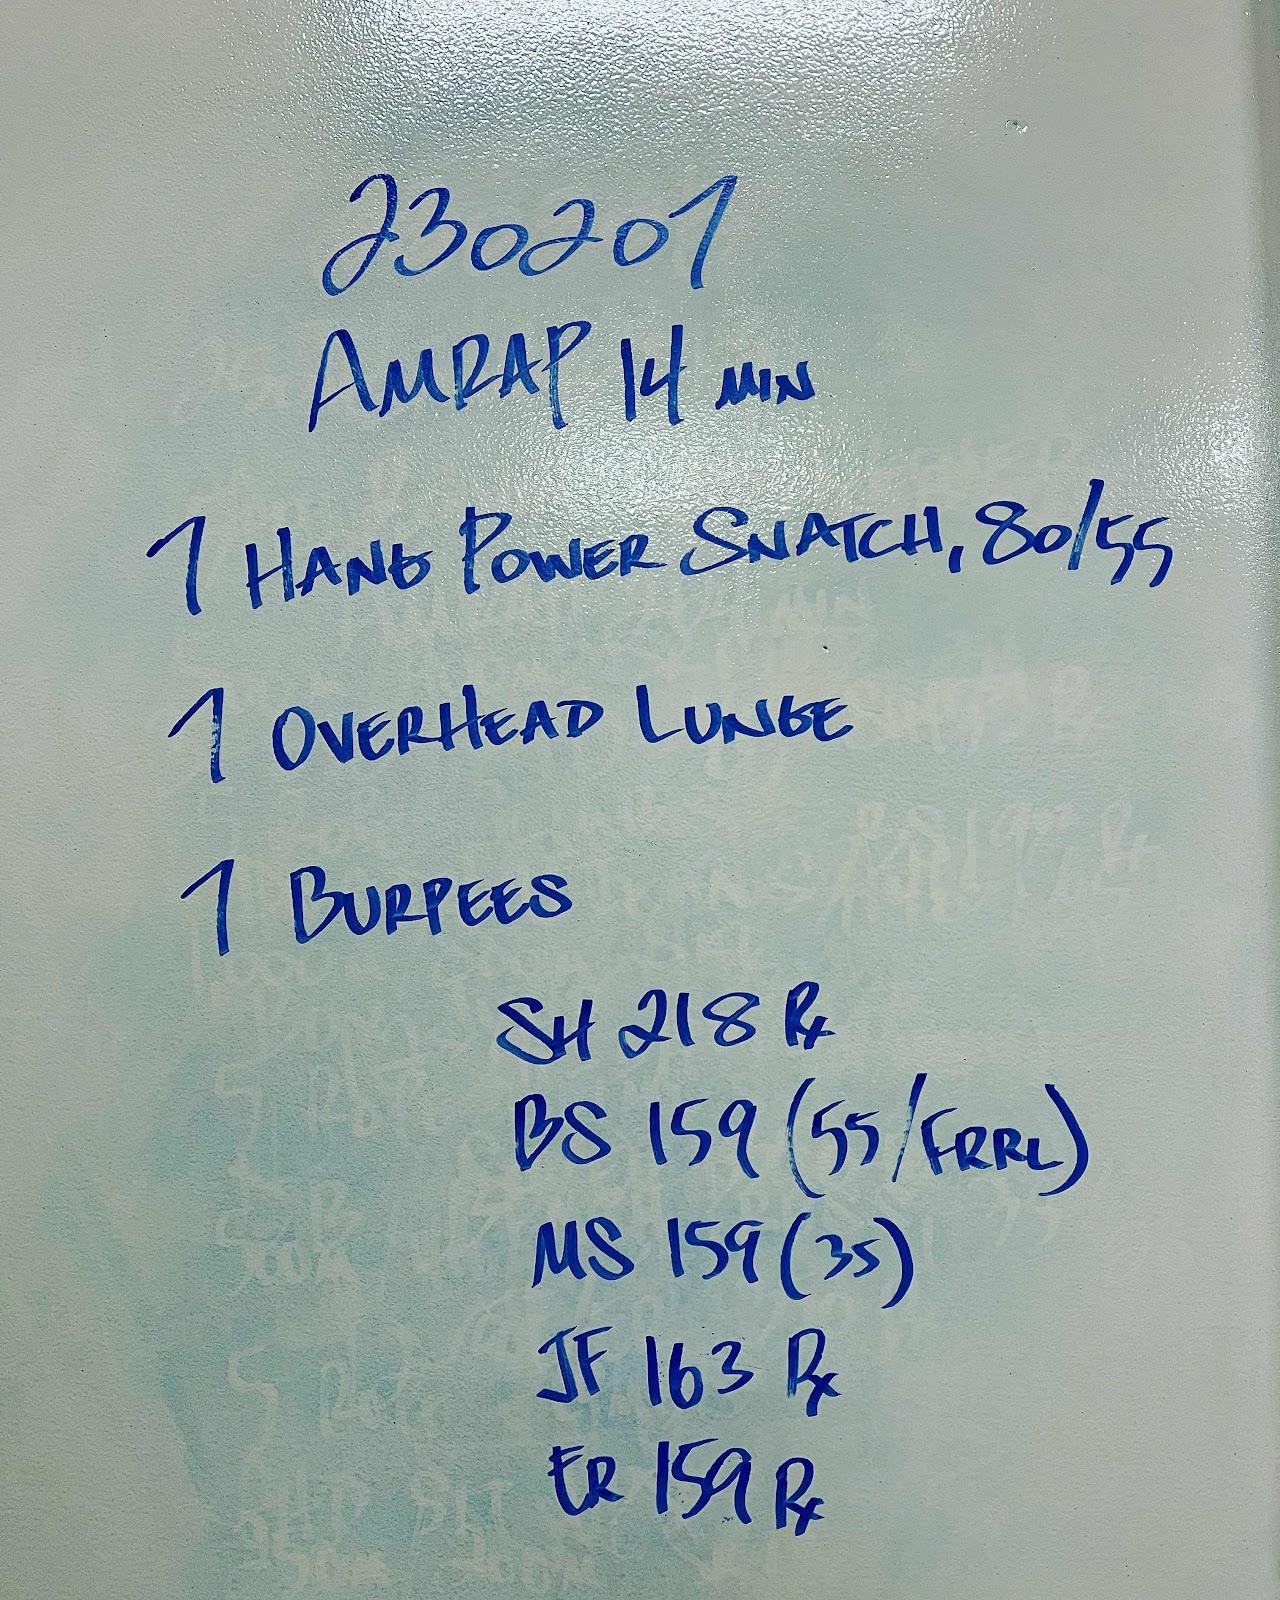 230201
AMRAP 14 MIN
1 HANG POWER SNATCH, 80/55
1 OVERHEAD LUNGE
1 BURPEES
SH 218 Rx
BS 159 (55/FRRL)
MS 159 (35)
JF 163 Rx
ER 159 Rx